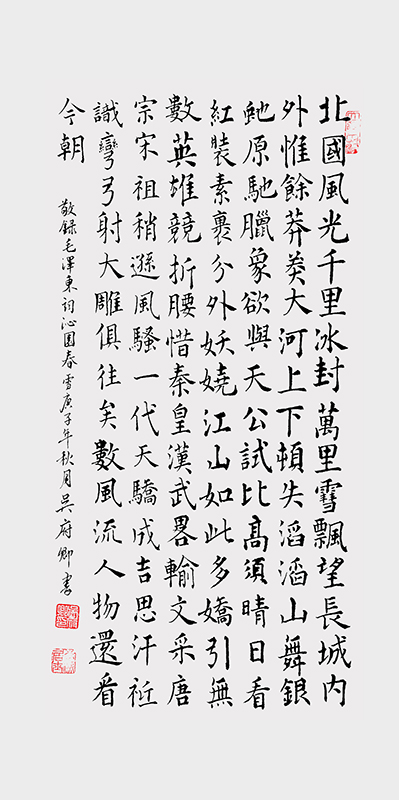 北國風光千里冰封萬里雪飄望長城內
外惟餘莽莽大河上下頓失滔滔山舞銀
虵原馳臘象欲與天公試比高須晴日看
紅裝素裹分外妖嬈江山如此多嬌引無
數英雄競折腰惜秦皇漢武畧輸文采唐
宗宋祖稍遜風騷一代天驕成吉思汗祗
識彎弓射大雕俱往矣數風流人物還看
今朝
敬録毛澤東詞沁園春雪庚子年秋月吳府卿書